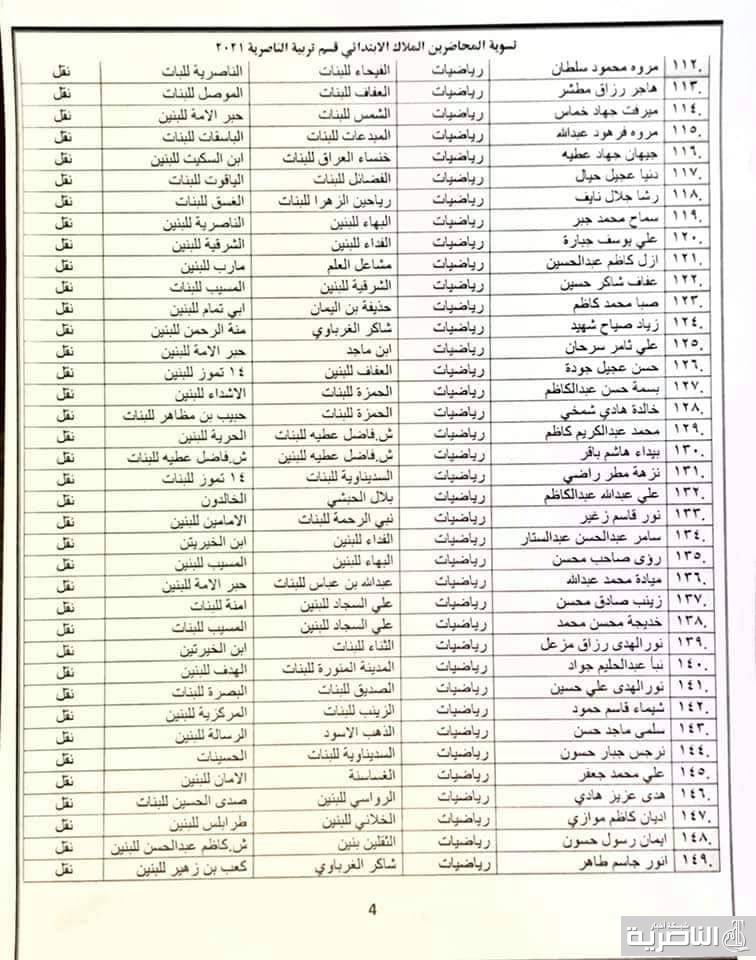 تسوية المحاضرين الملاك الابتدائي قسم تربية الناصرية ٢٠٢١
١١٢. مروه محمود سلطان رياضيات الفيحاء للبنات الناصرية للبات نقل
١١٣. هاجر رزاق مطشر رياضيات العفاف للبنات الموصل للبنات نقل
١١٤. ميرفت جهاد خماس رياضيات الشمس للبنات حبر الامة للبنين نقل
١١٥. مروه فرهود عبدالله رياضيات المبدعات للبنات الباسقات للبنات نقل
١١٦. جيهان جهاد عطيه رياضيات خنساء العراق للبنات ابن السكيت للبنين نقل
١١٧. دنيا عجيل حيال رياضيات الفضائل للبنات الياقوت للبنات نقل
١١٨. رشا جلال نايف رياضيات رياحين الزهرا للبنات الغسق للبنات نقل
١١٩. سماح محمد جبر رياضيات البهاء للبنين الناصرية للبنين نقل
١٢٠. علي يوسف جبارة رياضيات الفداء للبنين الشرقية للبنين نقل
١٢١. ازل كاظم عبدالحسين رياضيات مشاعل العلم مارب للبنين نقل
١٢٢. عفاف شاكر حسين رياضيات الشرقية للبنين المسيب للبنات نقل
١٢٣. صبا محمد كاظم رياضيات حذيفة بن اليمان ابي تمام للبنين نقل
١٢٤. زياد صياح شهيد رياضيات شاكر الغرباوي منة الرحمن للبنين نقل
١٢٥. علي ثامر سرحان رياضيات ابن ماجد حبر الامة للبنين نقل
١٢٦. حسن عجيل جودة رياضيات العفاف للبنين ١٤ تموز للبنين نقل
١٢٧. بسمة حسن عبدالكاظم رياضيات الحمزة للبنات الاشداء للبنين نقل
١٢٨. خالدة هادي شمخي رياضيات الحمزة للبنات حبيب بن مظاهر للبنات نقل
١٢٩. محمد عبدالكريم كاظم رياضيات ش.فاضل عطيه للبنات الحرية للبنين نقل
١٣٠. بيداء هاشم باقر رياضيات ش.فاضل عطيه للبنين ش.فاضل عطيه للبنات نقل
١٣١. نزهة مطر راضي رياضيات السديناوية للبنات ١٤ تموز للبنات نقل
١٣٢. علي عبدالله عبدالكاظم رياضيات بلال الحبشي الخالدون نقل
١٣٣. نور قاسم زغير رياضيات نبي الرحمة للبنات الامامين للبنين نقل
١٣٤. سامر عبدالحسن عبدالستار رياضيات الفداء للبنين ابن الخيريتن نقل
١٣٥. رؤى صاحب محسن رياضيات البهاء للبنين المسيب للبنين نقل
١٣٦. ميادة محمد عبدالله رياضيات عبدالله بن عباس للبنات حبر الامة للبنين نقل
١٣٧. زينب صادق محسن رياضيات علي السجاد للبنين امنة للبنات نقل
١٣٨. خديجة محسن محمد رياضيات علي السجاد للبنين المسيب للبنات نقل
١٣٩. نور الهدى رزاق مزعل رياضيات الثناء للبنات ابن الخيرتين نقل
١٤٠. نبأ عبدالحليم جواد رياضيات المدينة المنورة للبنات الهدف للبنين نقل
١٤١. نور الهدى علي حسين رياضيات الصديق للبنات البصرة للبنات نقل
١٤٢. شيماء قاسم حمود رياضيات الزينب للبنات المركزية للبنين نقل
١٤٣. سلمى ماجد حسن رياضيات الذهب الاسود الرسالة للبنين نقل
١٤٤. نرجس جبار حسون رياضيات السديناوية للبنات الحسينات نقل
١٤٥. علي محمد جعفر رياضيات الغساسنة الامان للبنين نقل
١٤٦. هدى عزيز هادي رياضيات الرواسي للبنين صدى الحسين للبنات نقل
١٤٧. اديان كاظم موازي رياضيات الخلاني للبنين طرابلس للبنين نقل
١٤٨. ايمان رسول حسون رياضيات الثقلين بنين ش.كاظم عبدالحسن للبنين نقل
١٤٩. انور جاسم طاهر رياضيات شاكر الغرباوي كعب بن زهير للبنين نقل
4
شبكة اخبار
الناصرية